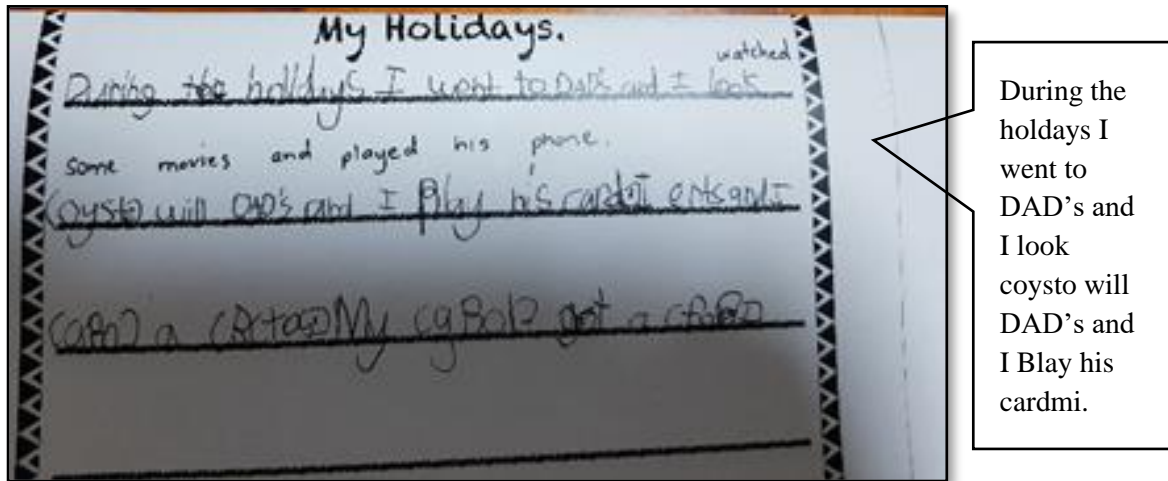 My Holidays.
watched
During the holidays I went to DAD's and I look
some movies and played his phone.
coysto will DAD's and I Play his
a My got a
During the
holdays I
went to
DAD's and
I look
coysto will
DAD's and
I Blay his
cardmi.